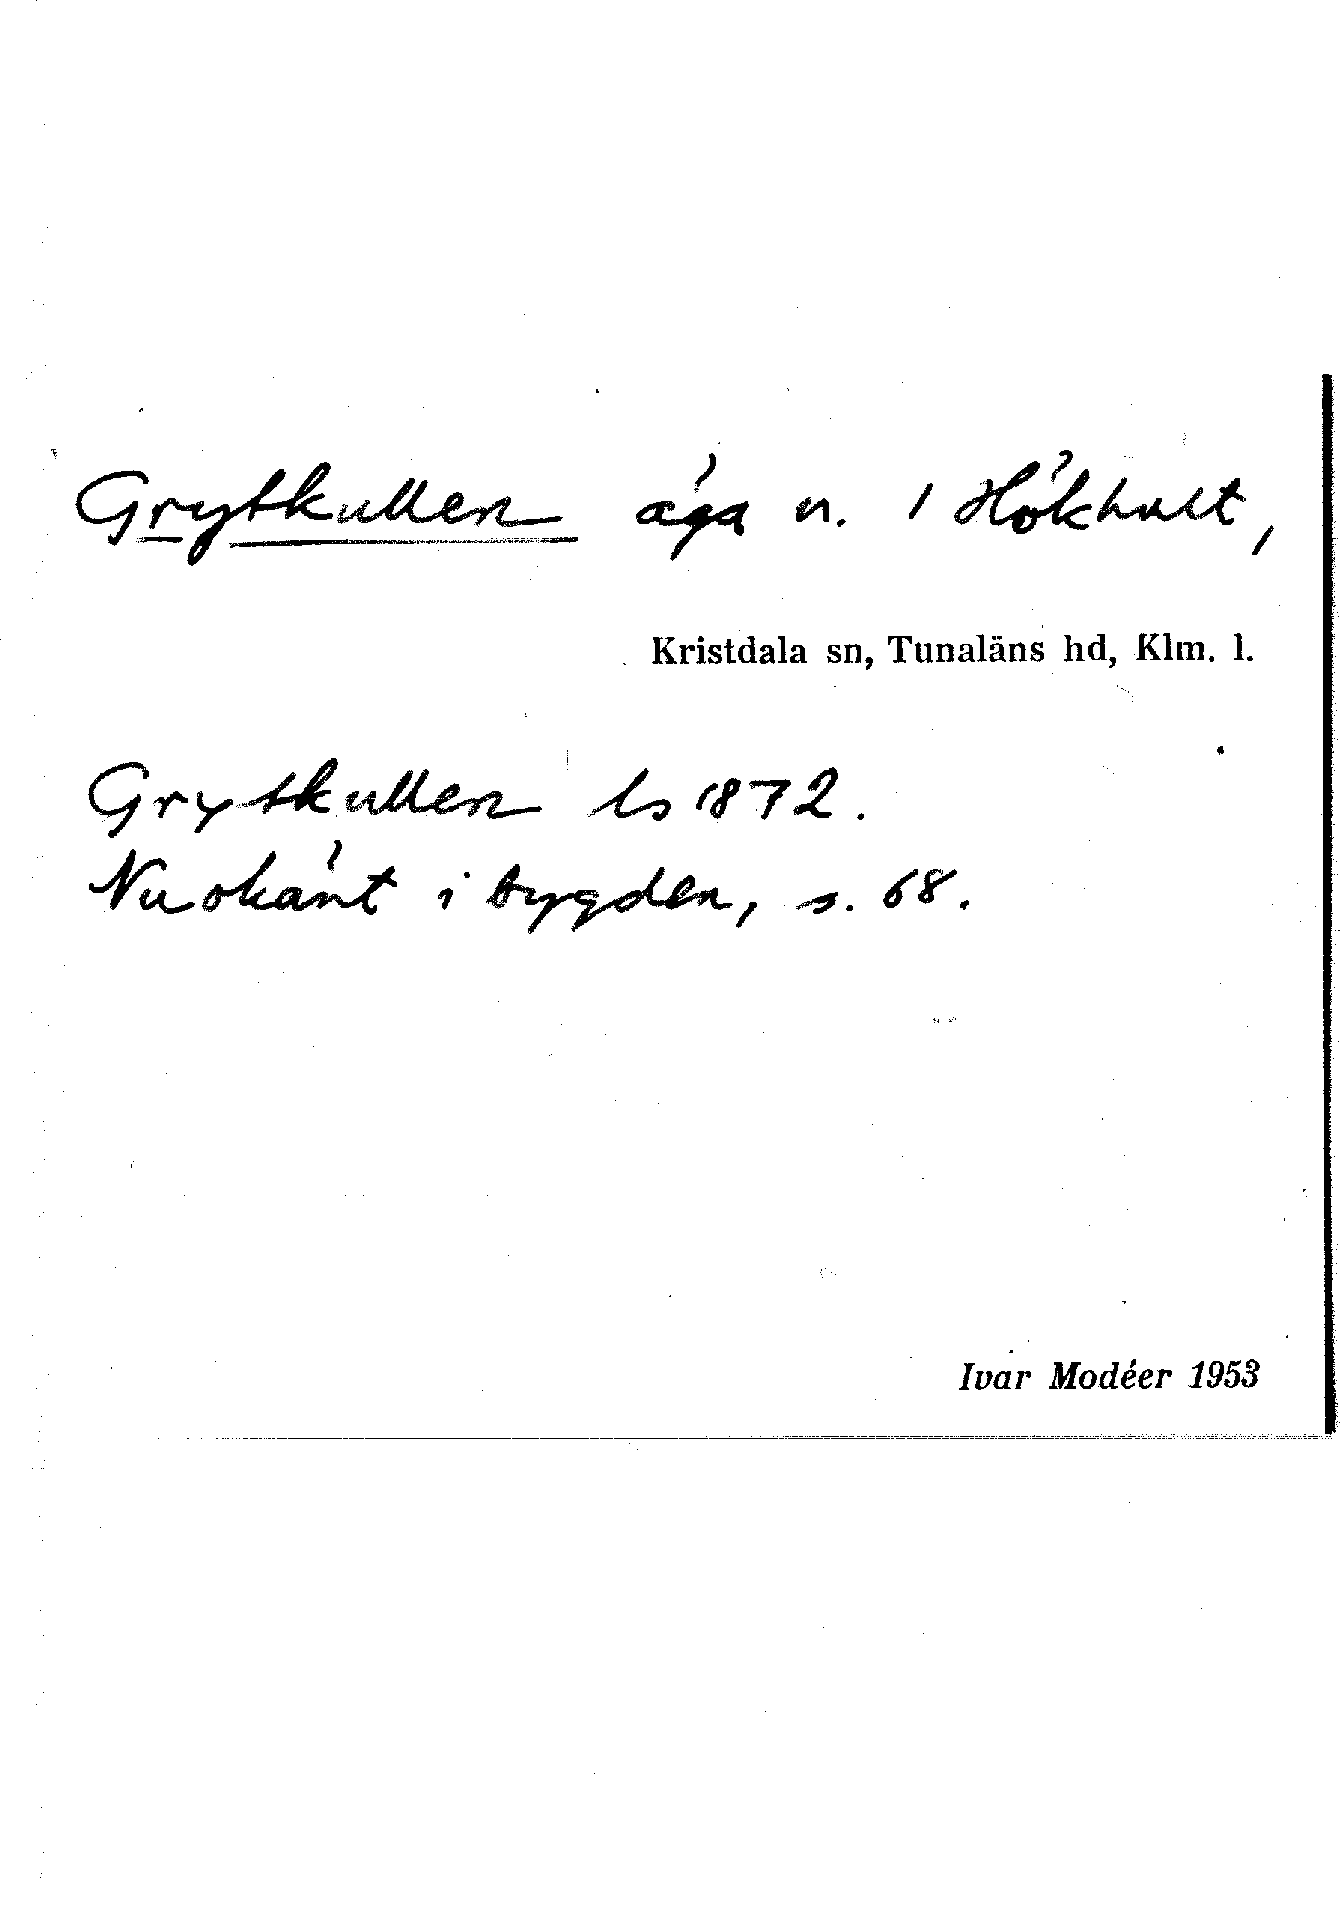 Grytkullen äga n. 1 Hökhult,
Kristdala sn, Tunaläns hd, Klm. l.
Grytkullen ls 1872.
Nu okänt i bygden, s. 68.
Ivar Modéer 1953